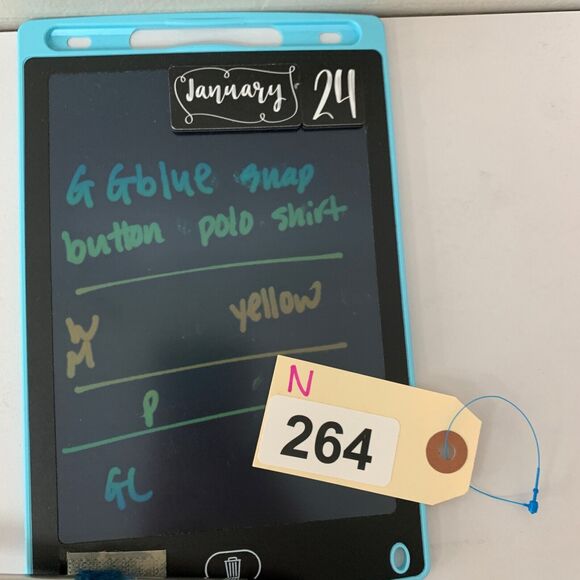 January 24
G Gblue snap
button polo shirt
W yellow
M
P
GL
N
264